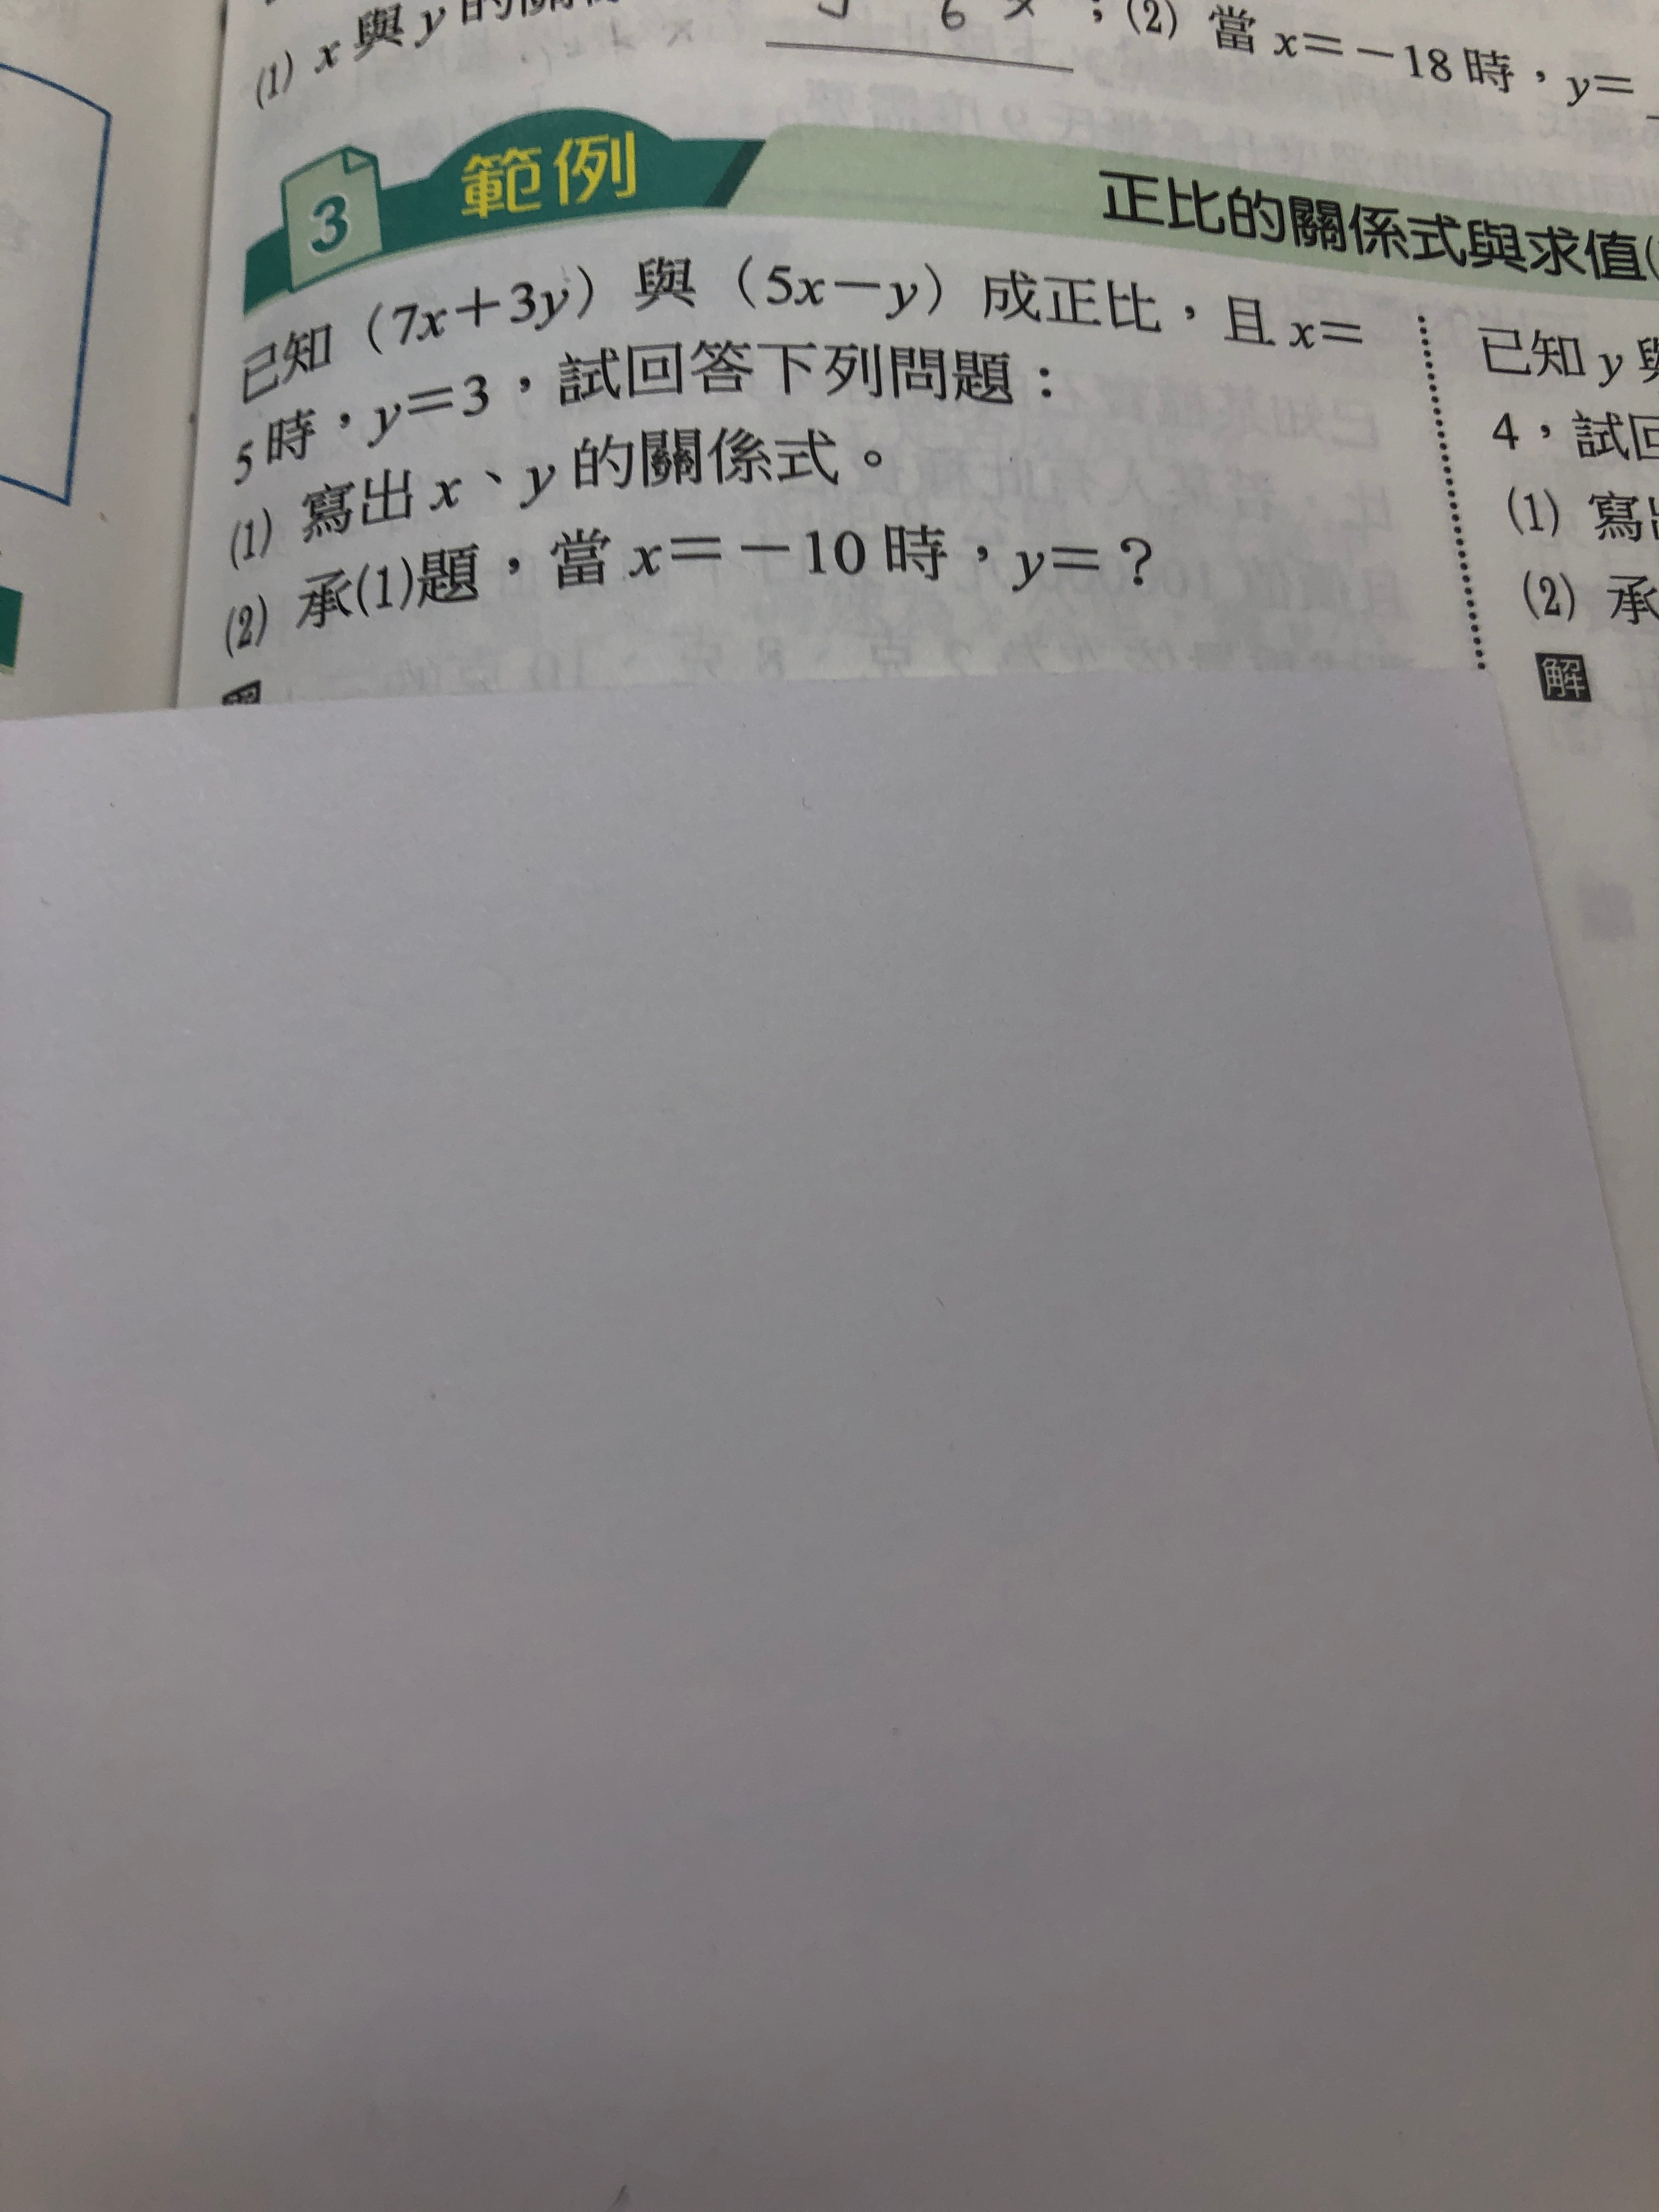 (1) x與y的關
; (2) 當x=-18時,y=
3 範例
正比的關係式與求值(
已知(7x+3y)與(5x-y)成正比,且x=
5時,y=3,試回答下列問題:
(1) 寫出x、y的關係式。
(2) 承(1)題,當x=-10時,y=?
已知y與
4,試回
(1) 寫出
(2) 承
解